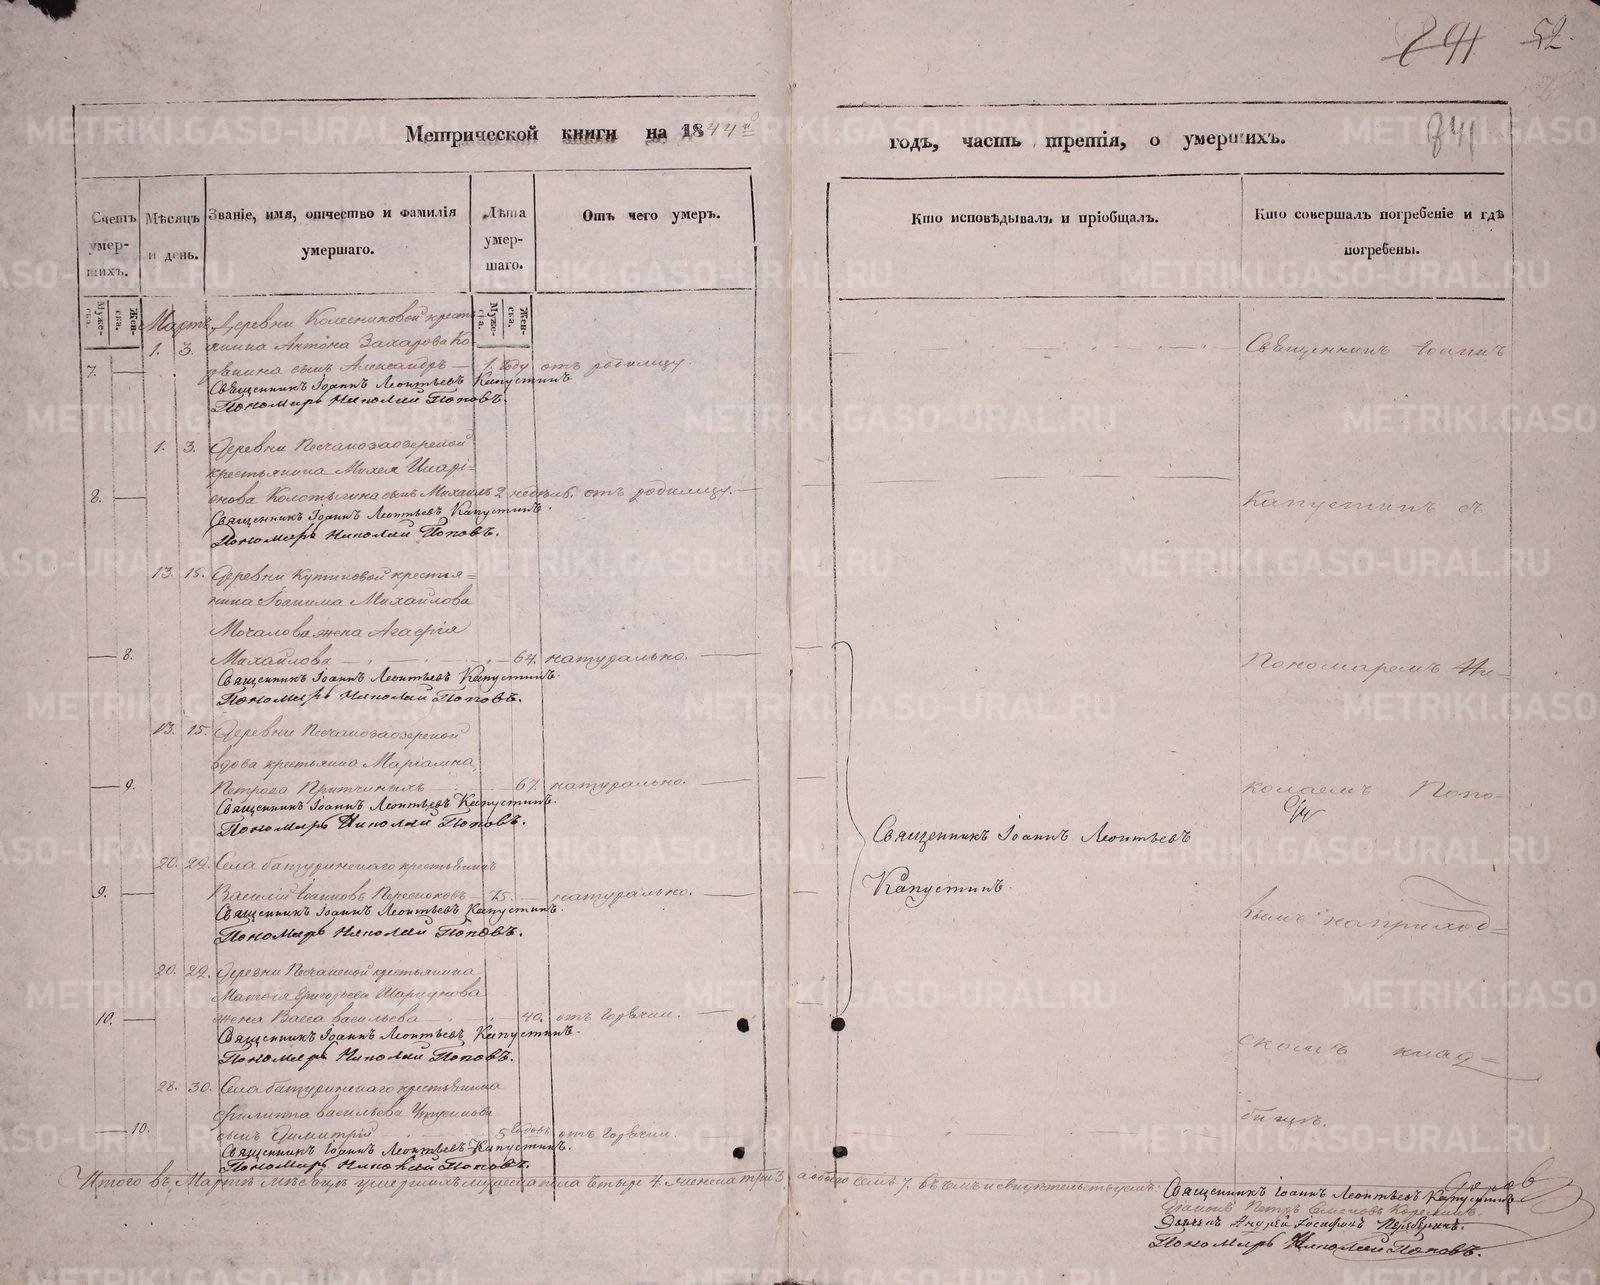 291 52.
Метрической книги на 1844й
годъ, часть третія, о умершихъ.
841
Счетъ умер-шихъ.
Мѣсяцъ и день.
Званіе, имя, отчество и фамилія умершаго.
Лѣта умер-шаго.
Отъ чего умеръ.
Кто исповѣдывалъ и пріобщалъ.
Кто совершалъ погребеніе и гдѣ погребены.
Муже-ска.
Жен-ска.
Муже-ска.
Жен-ска.
Мартъ Деревни Колесниковой кресть
1. 3. янина Антона Захарова Ко
7. сынъ Александръ 1. году отъ родимцу.
Священникъ Іоаннъ Леонтьевъ Капустинъ
Пономарь Николай Поповъ.
1. 3. Деревни Песчаноозерской
крестьянина Михея Иларі=
8. онова сынъ Михаилъ 2 недѣль. отъ родимцу.
Священникъ Іоаннъ Леонтьевъ Капустинъ.
Пономарь Николай Поповъ.
13. 15. Деревни крестья=
нина Іоакима Михайлова
Мочалова жена Агафія
8. Михайлова 64. натурально.
Священникъ Іоаннъ Леонтьевъ Капустинъ.
Пономарь Николай Поповъ.
13. 15. Деревни
вдова крестьянка Маріамна
9. Петрова 67. натурально.
Священникъ Іоаннъ Леонтьевъ Капустинъ.
Пономарь Николай Поповъ.
20. 22. Села батуринскаго крестьянинъ
9. Василій Іоанновъ 75. натурально.
Священникъ Іоаннъ Леонтьевъ Капустинъ.
Пономарь Николай Поповъ.
20. 22. Деревни Песчанской крестьянина
Матвѣя Григорьева
10. жена Васса васильева 40. отъ горячки.
Священникъ Іоаннъ Леонтьевъ Капустинъ.
Пономарь Николай Поповъ.
28. 30. Села батуринскаго крестьянина
Филиппа васильева
10. сынъ Димитрій 5 годовъ отъ горячки.
Священникъ Іоаннъ Леонтьевъ Капустинъ.
Пономарь Николай Поповъ.
Итого въ Мартѣ мѣсяцѣ умершихъ мужеска пола четыре 4. женска три 3 а обоего семь 7. въ чемъ и свидѣтельствуемъ:
Священникъ Іоаннъ Леонтьевъ
Капустинъ.
Священникъ Іоаннъ
Капустинъ съ
Пономаремъ Ни-
колаемъ Попо-
вымъ на приход=
скомъ клад=
бищѣ.
Священникъ Іоаннъ Леонтьевъ Капустинъ
Діаконъ Петръ Семеновъ
Дьячекъ Андрей Іосифовъ
Пономарь Николай Поповъ.
METRIKI.GASO-URAL.RU